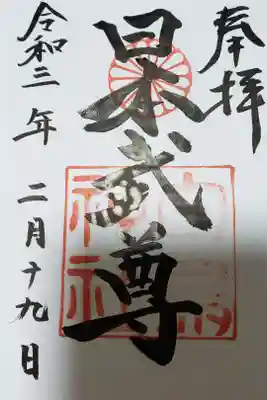 奉拝
日本武尊
令和三年 二月十九日